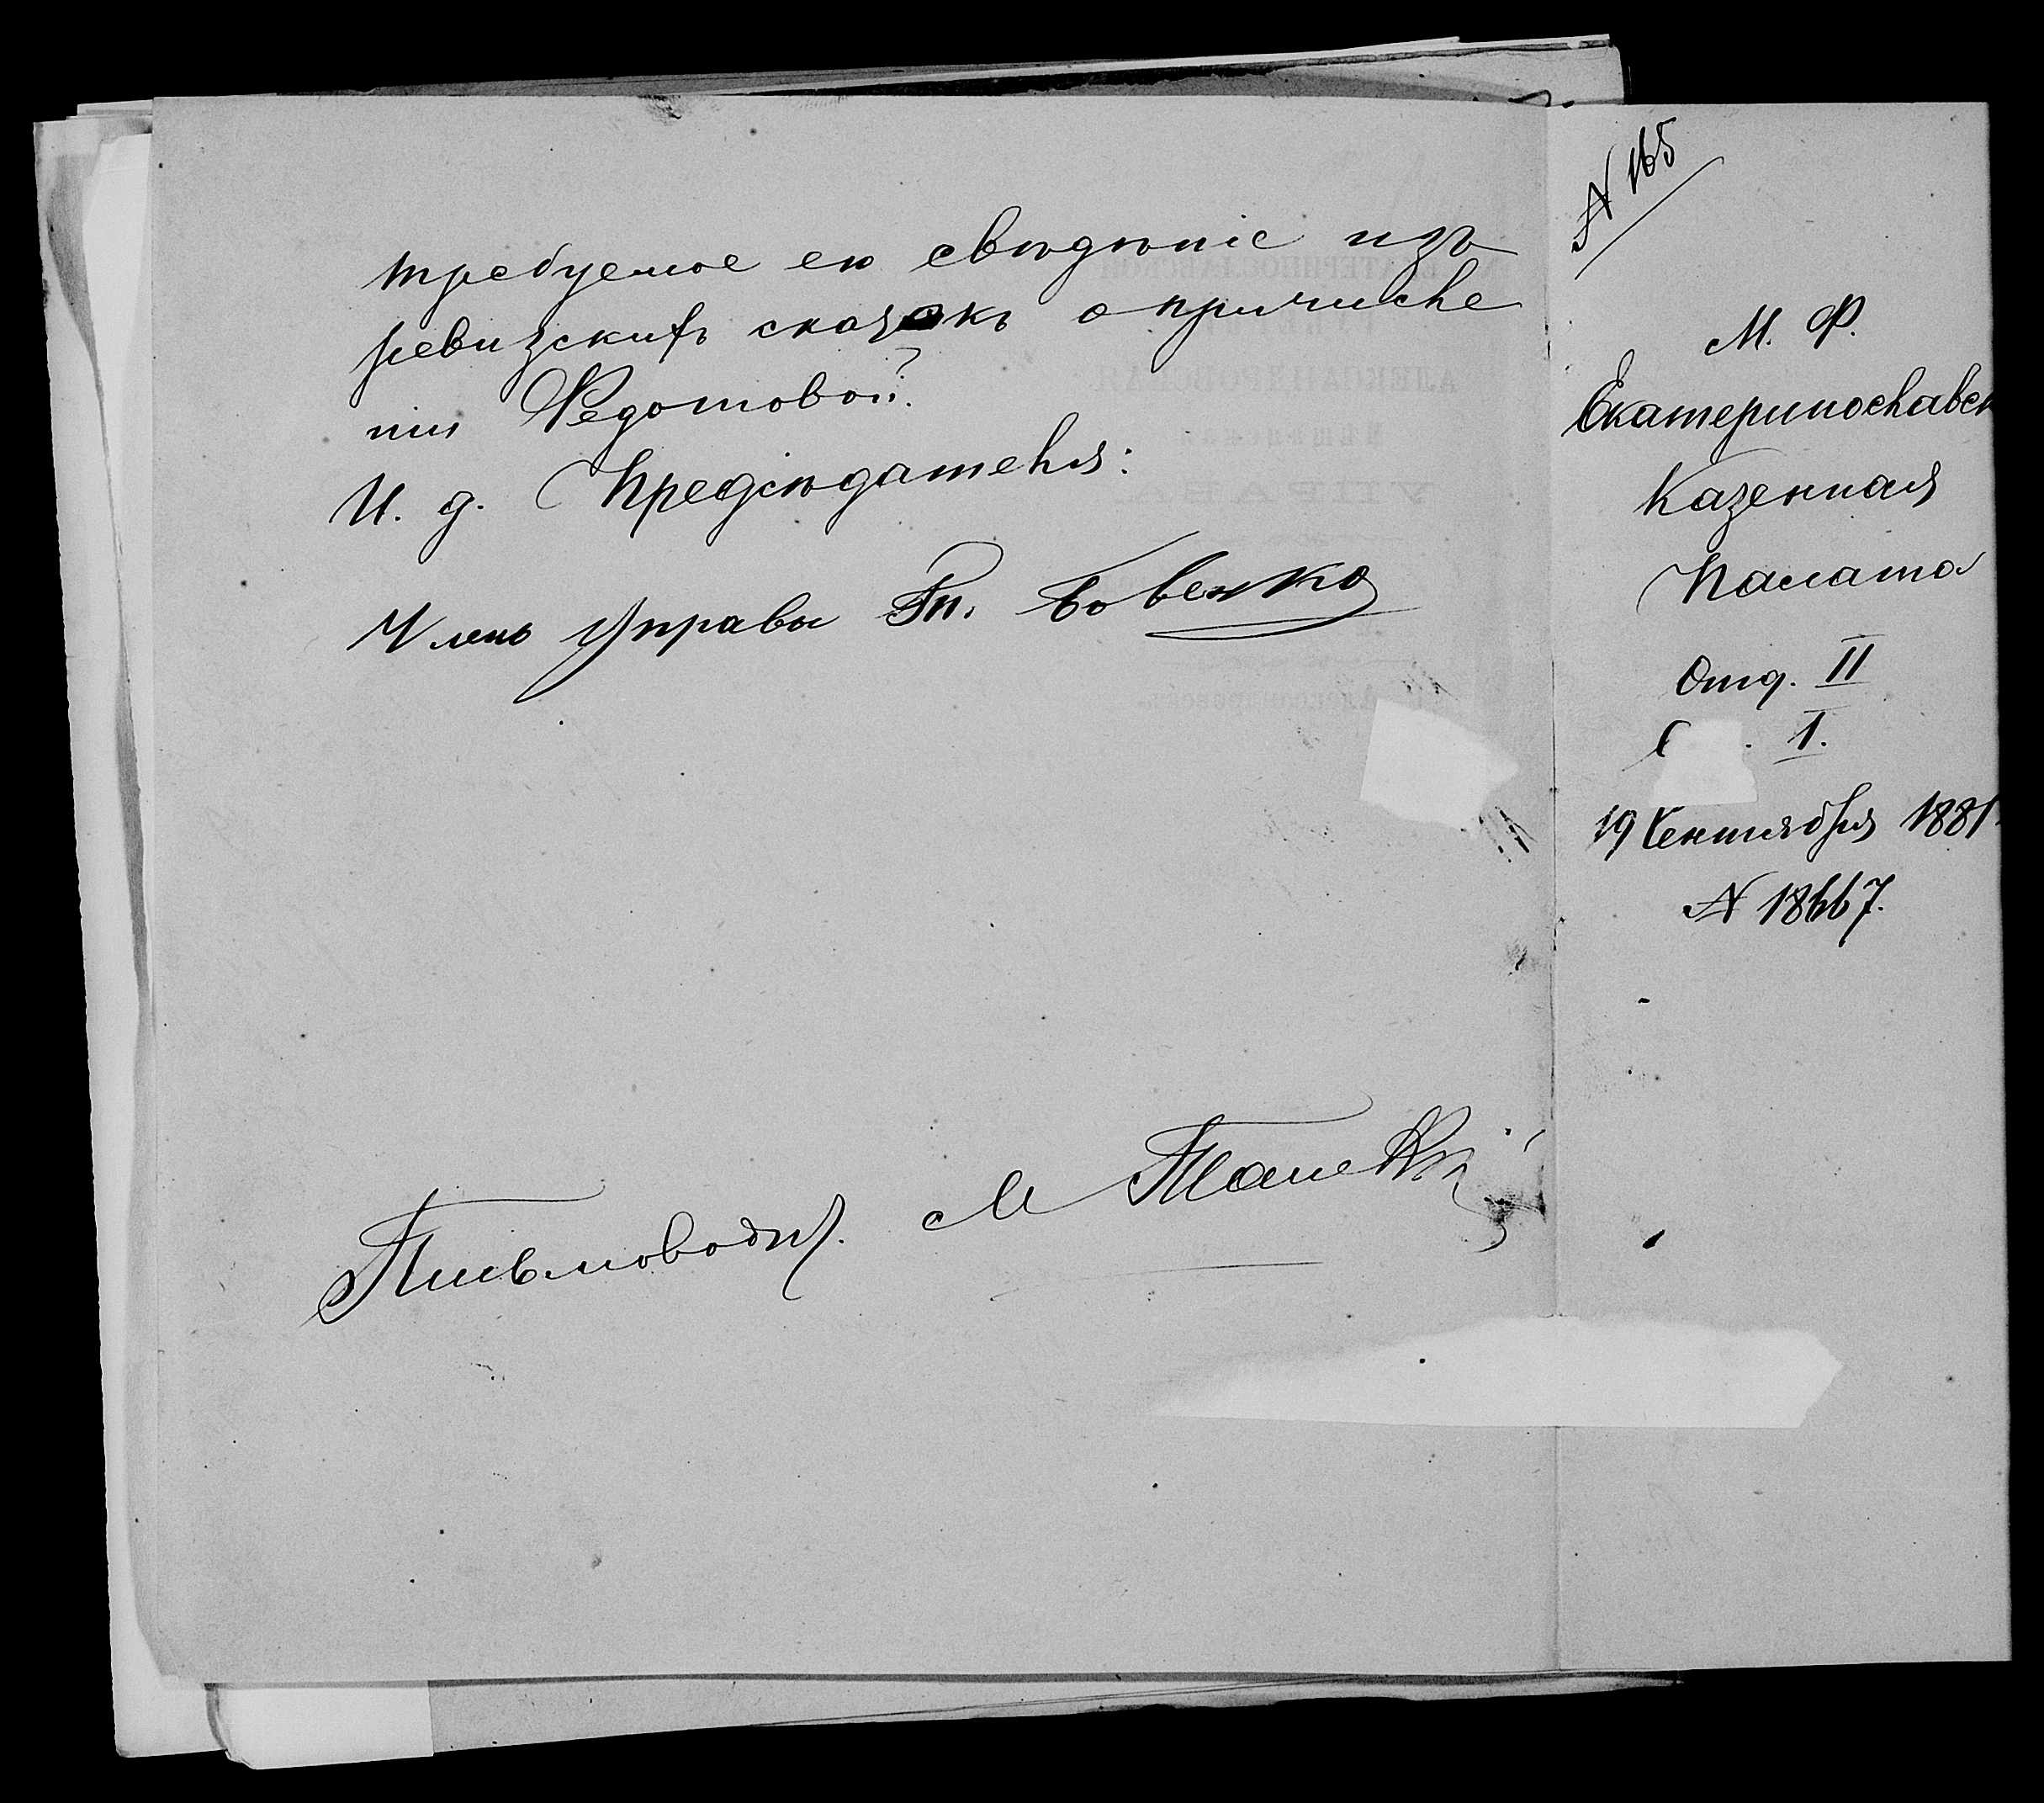 требуемое ею свѣдѣніе изъ
ревизскихъ сказокъ о причисле
нiи Федотовой.
И. д. Предсѣдателя:
Членъ Управы Гр. Бовенко
Письмоводит.
М
№ 165
М. Ф.
Екатеринославск
Казенная
Палата
Отд. II
С . I.
19 Сентября 1881
№ 18667.